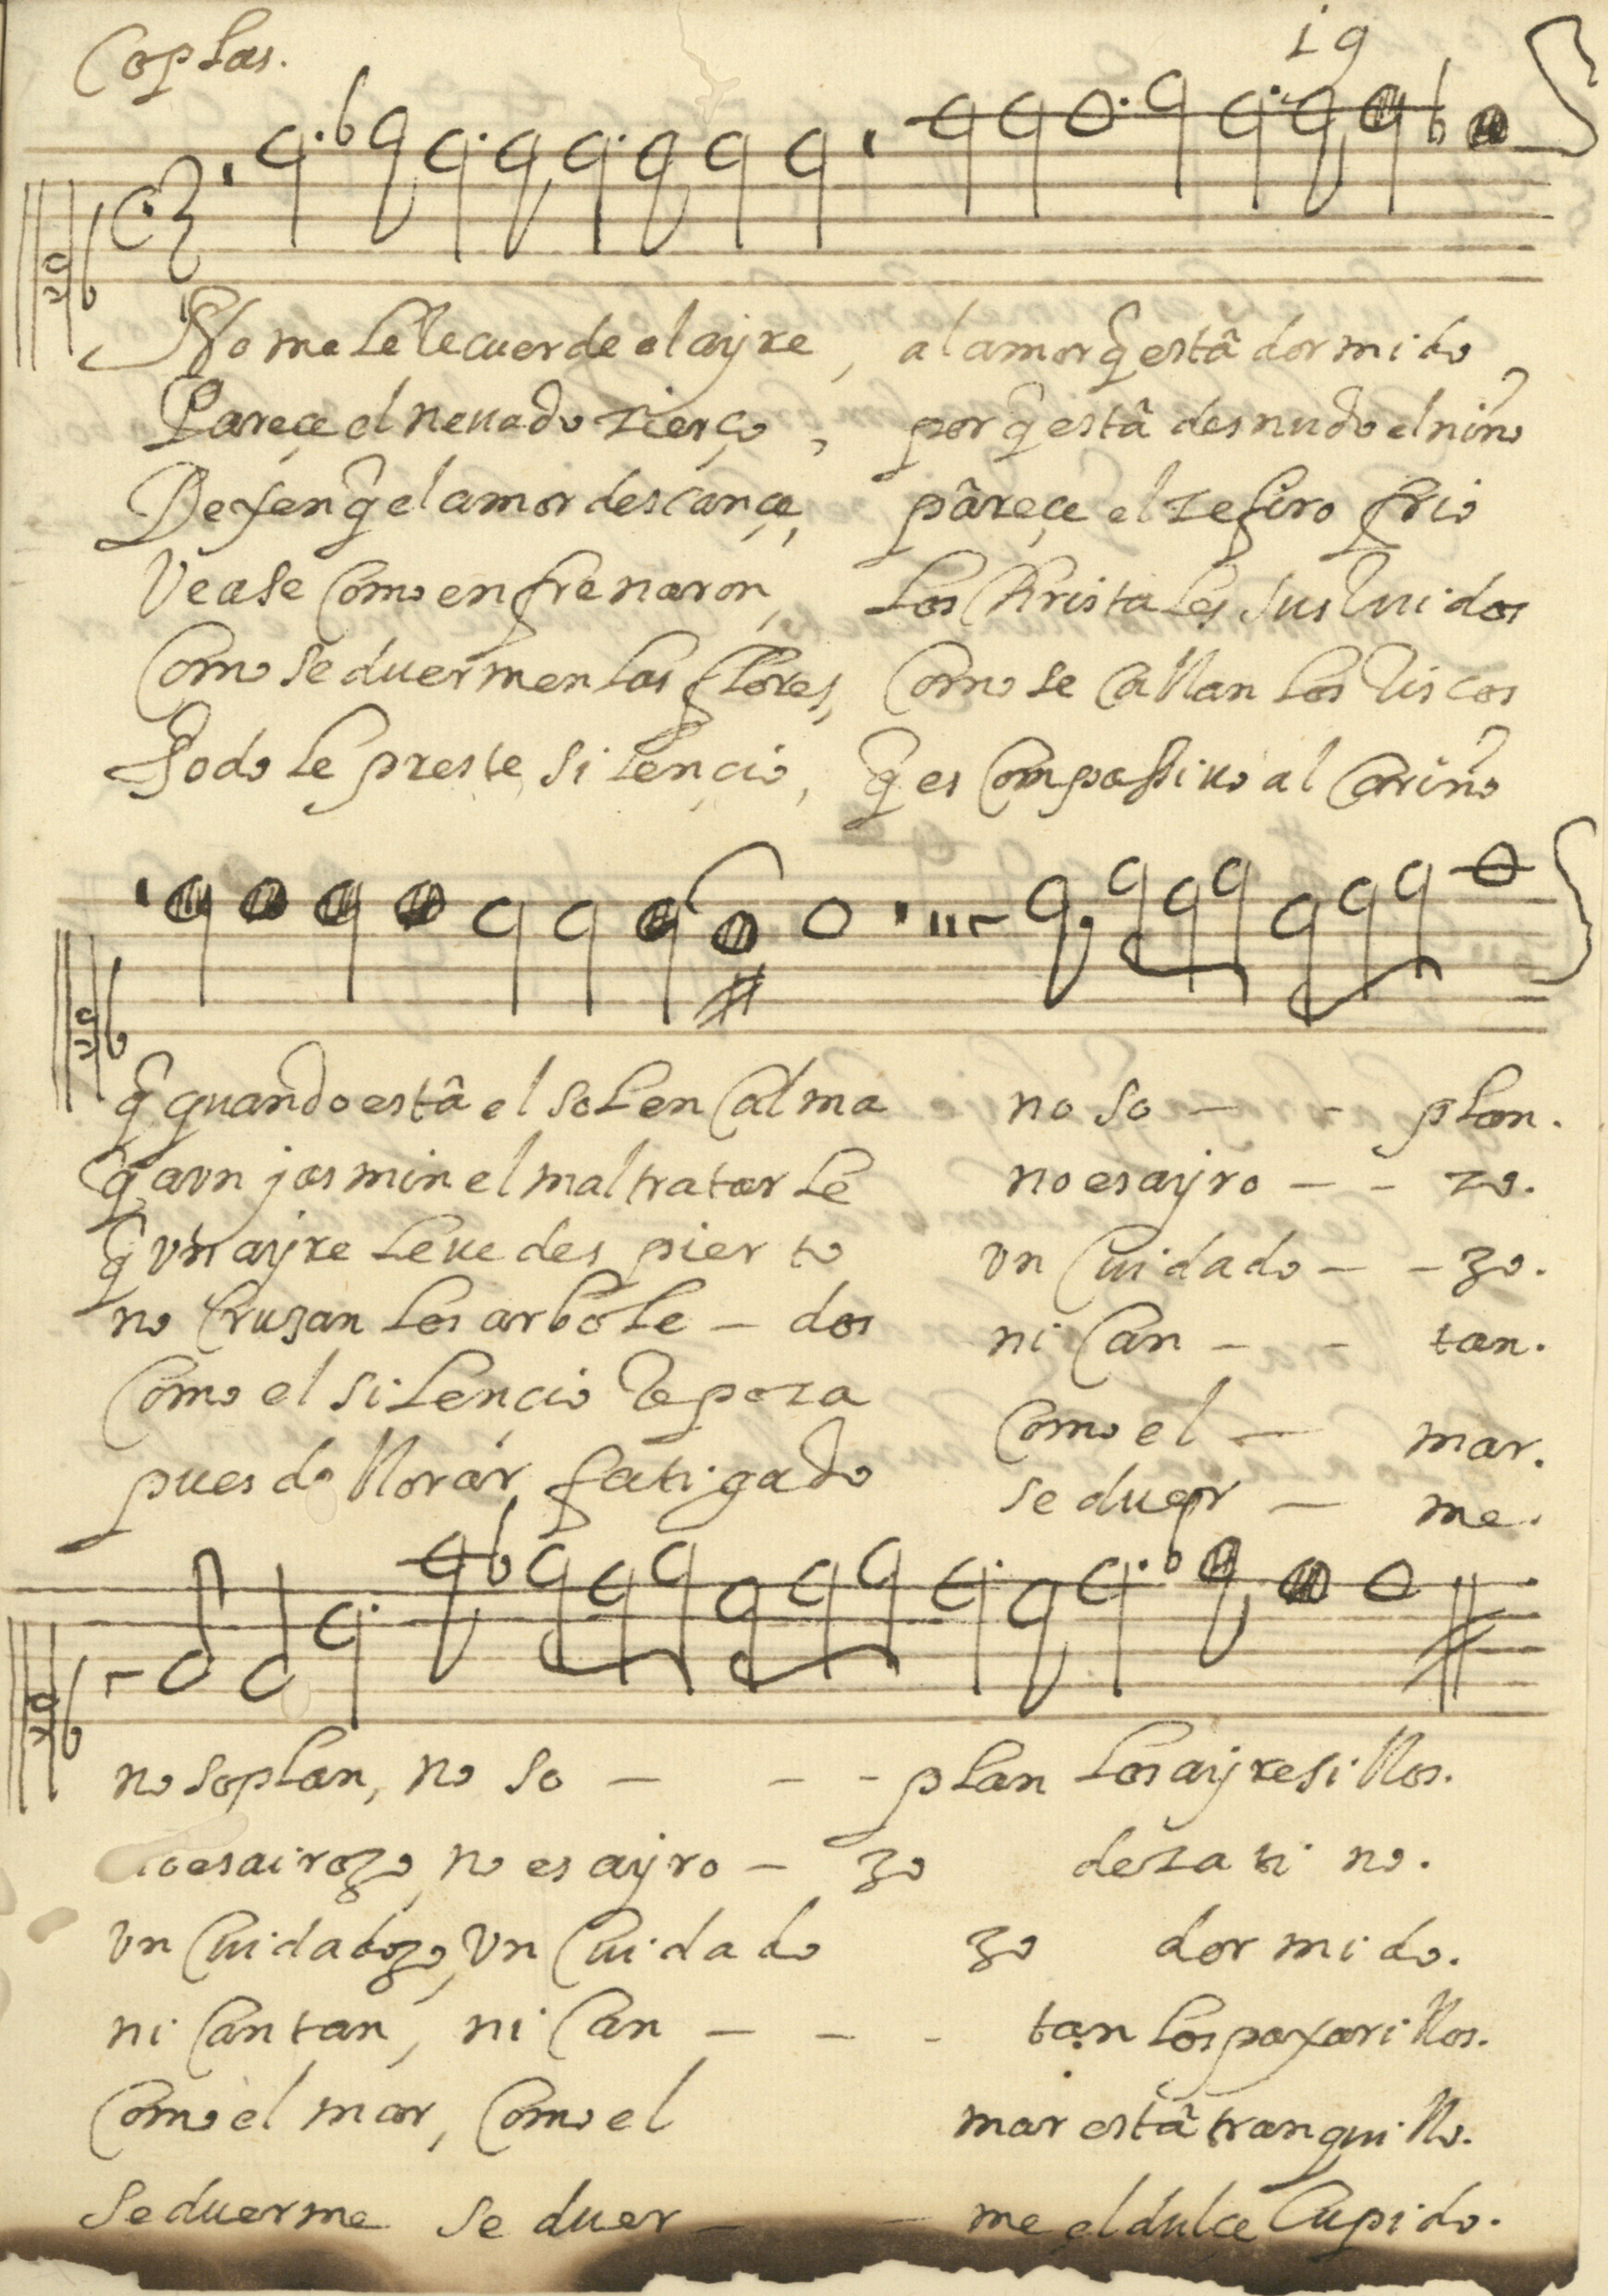 Coplas.
i g
No me le Recuerde el ayre, al amor q̃ està dormido,
Pareçe el neuado zierço, por q̃ està desnudo el niño
Dexen q̃ el amor descançe, pàreçe el zefiro frio
Vease Como enfrenaron, los Kristales sus Ruidos
Como se duermen las flores, Como se Callan los Riscos
Todo le preste silençio, q̃ es Compassiuo al Cariño
q̃ quando està el sol en Calma no so - - plan.
q̃ avn jasmin el maltratarle no es ayro - - zo.
q̃ vn ayre leue despierto vn Cuidado - - zo.
no Cruzan los arbole - dos ni Can - - tan.
Como el silençio Repoza Como el - mar.
pues de llorar, fatigado se duer - me.
no soplan, no so - - - plan los ayresillos.
no es airozo, no es ayro - zo dezatino.
vn Cuidadozo, vn Cuidado zo dormido.
ni Cantan, ni Can - - - tan los paxarillos.
Como el mar, Como el mar està tranquillo.
Se duerme se duer - - me el dulçe Cupido.